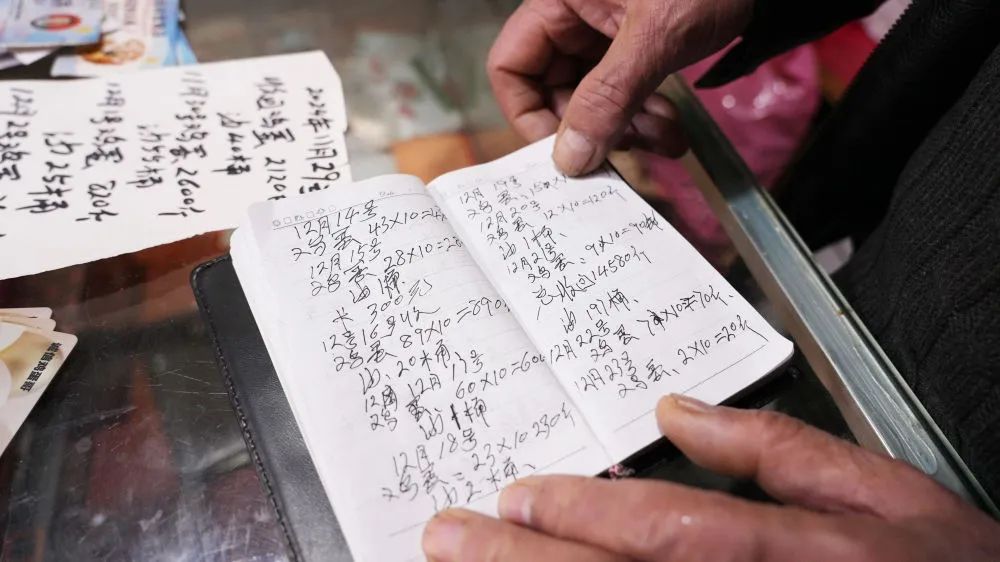 2024年11月29号
收回鸡蛋 2120
油40桶
鸡蛋2600个
油55桶
鸡蛋 720个
油25桶
12月14号
鸡蛋、43×10=
12月15号
鸡蛋、28×10=28
油1桶
卡 300元
12号16号收
鸡蛋、89×10=890
油、20桶
12月17号
鸡蛋 60×10=60
油1桶
12月18号
鸡蛋=23×10 230个
油2桶、
12月19号
鸡蛋、15
12月20号
鸡蛋、12×10=120个
油1桶、
12月21号
鸡蛋、9×10=90
总收回14580个
油191桶、
12月22号
鸡蛋、7×10=70个、
12月23号
鸡蛋、2×10=20个